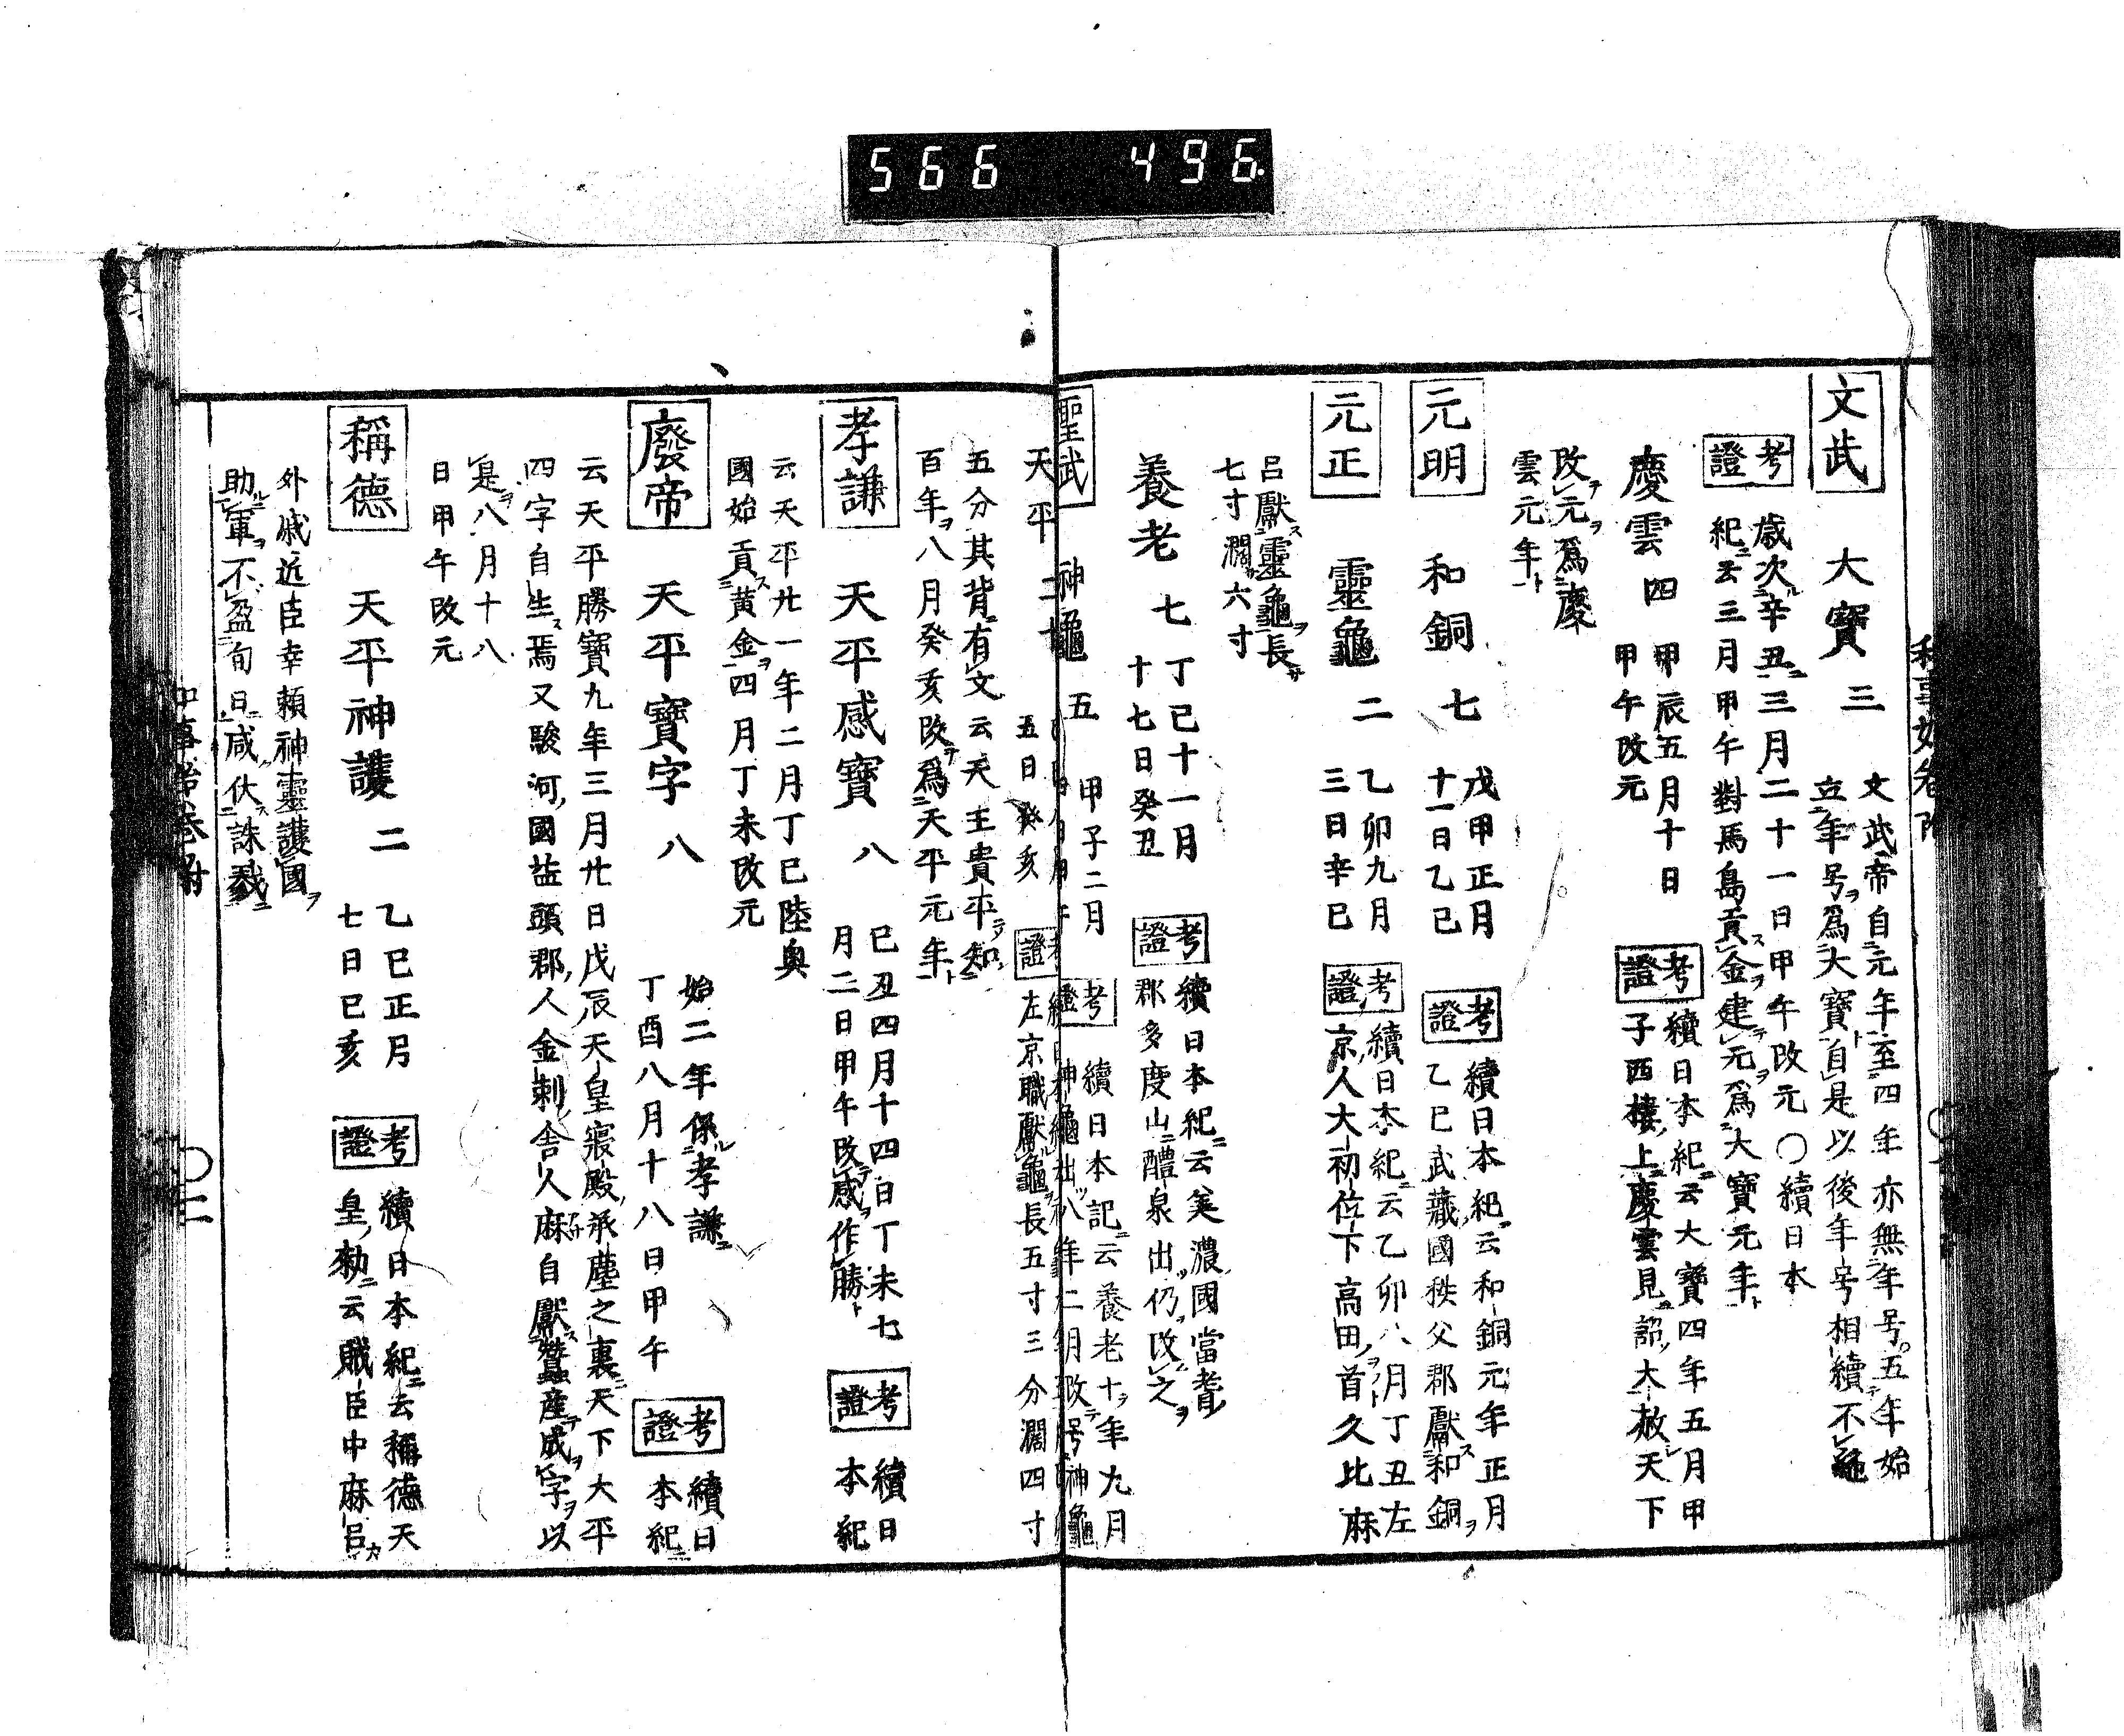 566 496.
文武
大寶三
文武帝自元年至四年亦無年号五年始
立年号爲大寶自是以後年号相續不絶
考證
歳次辛丑三月二十一日甲午改元○續日本
紀云三月甲午對馬島貢金建元爲大寶元年
慶雲四
甲辰五月十日
甲午改元
考證
續日本紀云大寶四年五月甲
子西樓上慶雲見詔大赦天下
改元爲慶
雲元年
元明
和銅七
戊甲正月
十一日乙巳
考證
續日本紀云和銅元年正月
乙巳武藏國秩父郡獻和銅
元正
靈龜二
乙卯九月
三日辛巳
考證
續日本紀云乙卯八月丁丑左
京人大初位下高田首久比麻
呂獻靈龜長
七寸濶六寸
養老七
丁巳十一月
十七日癸丑
考證
續日本紀云美濃國當耆
郡多度山醴泉出仍改之
聖武
神龜五
甲子二月
考證
續日本記云養老十年九月
神龜出八年二月改号神龜
天平二十
五日癸亥
左京職獻龜長五寸三分濶四寸
五分其背有文云天王貴平知
百年八月癸亥改爲天平元年
孝謙
天平感寶八
己丑四月十四日丁未七
月二日甲午改感作勝
考證
續日
本紀
云天平廿一年二月丁巳陸奥
國始貢黄金四月丁未改元
廢帝
天平寶字八
始二年係孝謙
丁酉八月十八日甲午
考證
續日
本紀
云天平勝寶九年三月廿日戊辰天皇寢殿承塵之裏天下大平
四字自生焉又駿河國益頭郡人金刺舎人麻自獻蠶産成字以
是八月十八
日甲午改元
稱德
天平神護二
乙巳正月
七日己亥
考證
續日本紀云稱德天
皇勅云賊臣中麻呂
外戚近臣幸頼神靈護國
助軍不盈旬日咸伏誅戮